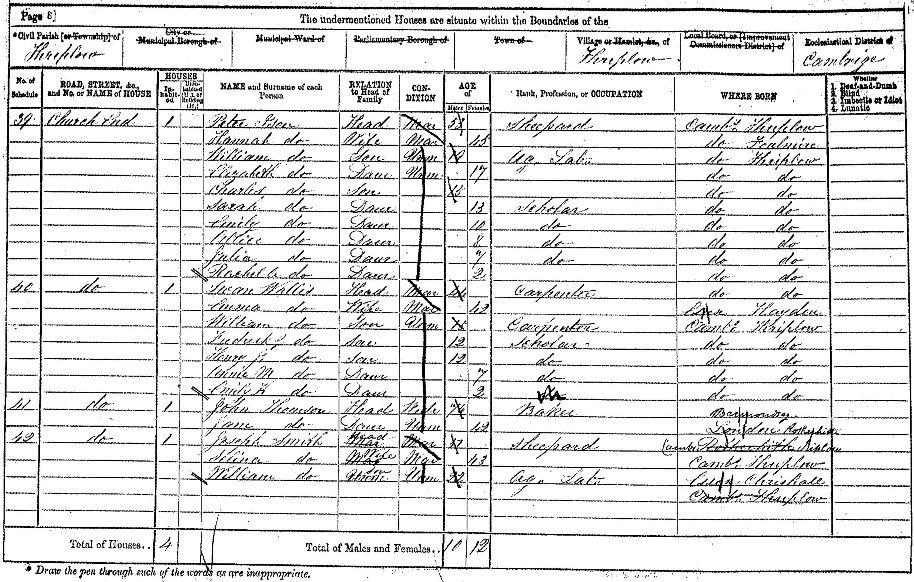 Page 8]
The undermentioned Houses are situate within the Boundaries of the
* Civil Parish [or Township] of
City or Municipal Borough of
Municipal Ward of
Parliamentary Borough of
Town of
Village or Hamlet, &c., of
Local Board, or [Improvement Commissioners District] of
Ecclesiastical District of
Thriplow
Thriplow
Cambrige
No. of Schedule
ROAD, STREET, &c., and No. or NAME of HOUSE
HOUSES
Inhabited
NAME and Surname of each Person
RELATION to Head of Family
CONDITION
AGE of
Males
Females
Rank, Profession, or OCCUPATION
WHERE BORN
Whether
1. Deaf-and-Dumb
2. Blind
3. Imbecile or Idiot
4. Lunatic
39 Church End 1 Peter Head Mar 53 Sheppard Camb. Thriplow
Hannah do Wife Mar 45 do Foulmire
William do Son Unm Ag. Lab. do Thriplow
Elizabeth do Daur Unm 17 do do
Charles do Son 15 do do
Sarah do Daur 13 Scholar do do
Emily do Daur 10 do do do
do Daur 8 do do do
Julia do Daur 7 do do do
Rachel do Daur 2 do do
40 do 1 Swan Wallis Head Mar 44 Carpenter do do
Emma do Wife Mar 42 Essex Heydon
William do Son Unm Carpenter Camb. Thriplow
Fredrick J do Son 12 Scholar do do
Henry J. do Son 12 do do do
Annie M do Daur 7 do do do
Emily K do Daur 2 do do
41 do 1 John Thomson Head 74 Baker Bermondsey
Jane do Daur Unm 42 London Rotherhithe
42 do 1 Joseph Smith Head Mar Sheppard Thriplow
Selina do Wife Mar 43 Camb. Thriplow
William do Son Unm 22 Ag. Lab. Essex Chrishall
Camb. Thriplow
Total of Houses.. 4
Total of Males and Females.. 10 12
* Draw the pen through such of the words as are inappropriate.